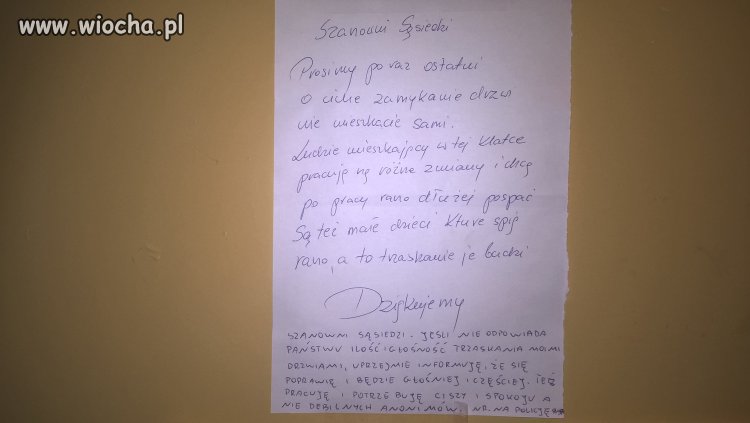 www.wiocha.pl
Szanowni Sąsiedzi
Prosimy po raz ostatni
o ciche zamykanie drzwi
nie mieszkacie sami.
Ludzie mieszkający w tej klatce
pracują na różne zmiany i chcą
po pracy rano dłużej pospać
Są też małe dzieci które śpią
rano, a to trzaskanie je budzi
Dziękujemy
SZANOWNI SĄSIEDZI. JEŚLI NIE ODPOWIADA
PAŃSTWU ILOŚĆ I GŁOŚNOŚĆ TRZASKANIA MOIMI
DRZWIAMI, UPRZEJMIE INFORMUJĘ, ŻE SIĘ
POPRAWIĘ I BĘDZIE GŁOŚNIEJ I CZĘŚCIEJ. TEŻ
PRACUJĘ I POTRZEBUJĘ CISZY I SPOKOJU A
NIE DEBILNYCH ANONIMÓW. NR. NA POLICJĘ